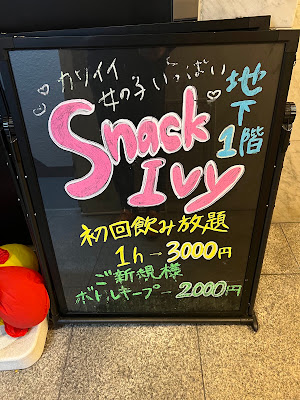 カワイイ
女の子いっぱい
地下1階
Snack
Ivy
初回飲み放題
1h→3000円
ご新規様
ボトルキープー2,000円